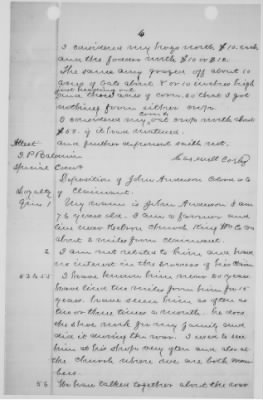 6
I considered my hogs worth $10. each
and the former worth $10 or $12.
The same army grazed off about 10
acres of oats about 8 or 10 inches high
just heading out
and three acres of corn, so that I got
nothing from either crop.
I considered my oat crop worth about
$50. if it had matured.
And further deponent saith not.
Attest
J. P. Baldwin
Special Com
Deposition of John Anderson
Claimant.
Loyalty
Ques 1
My name is John Anderson I am
75 years old. I am a farmer and
live near Nelson Church King Wm Co Va
about 2 miles from claimant.
2
I am not related to him and have
no interest in the success of his claim
53 & 54
I have known him near 20 years
have lived two miles from him for 15
years. have seen him as often as
two or three times a month. he does
the shoe work for my family and
did it during the war. I used to see
him at his shop very often and also at
the Church where we are both mem
bers.
56
We have talked together about the war